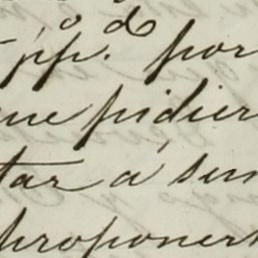 pp.º d por
que pidier
tar a sus
proponer